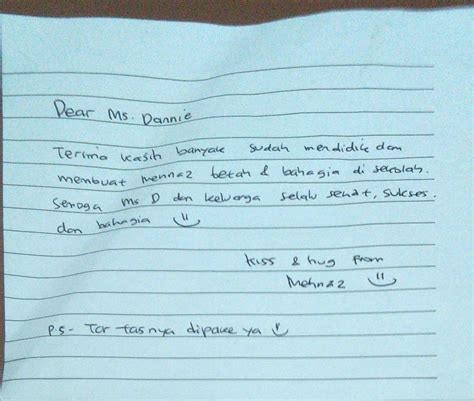 Dear Ms. Dannie
Terima kasih banyak sudah mendidik dan
membuat mehnaz betah & bahagia di sekolah.
Semoga Ms D dan keluarga selalu sehat, sukses.
dan bahagia
kiss & hug from
Mehnaz
P.S- Tar tasnya dipake ya